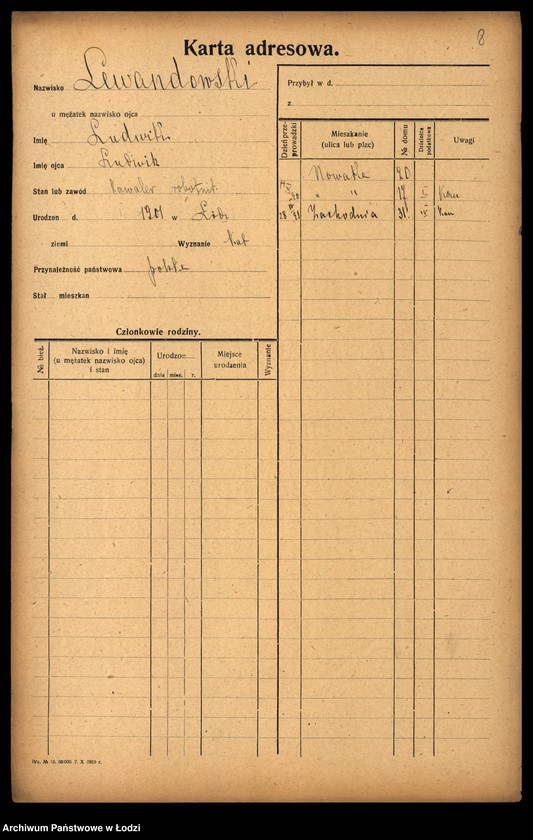 8
Karta adresowa.
Nazwisko Lewandowski
u mężatek nazwisko ojca
Imię Ludwik
Imię ojca Ludwik
Stan lub zawód kawaler robotnik
Urodzon d. 1901 w Łodz
ziemi Wyznanie kat
Przynależność państwowa polska
Stał mieszkan
Członkowie rodziny.
№ bież. Nazwisko i imię (u mężatek nazwisko ojca) i stan Urodzon dnia mies. r. Miejsce urodzenia Wyznanie
Przybył w d.
z
Dzień przeprowadzki Mieszkanie (ulica lub plac) № domu Dzielnica podatkowa Uwagi
Nowaka 20
" " 17
28 31 Zachodnia 31. IX
IVa. № 15. 60 000 7. X. 1919 r.
Archiwum Państwowe w Łodzi